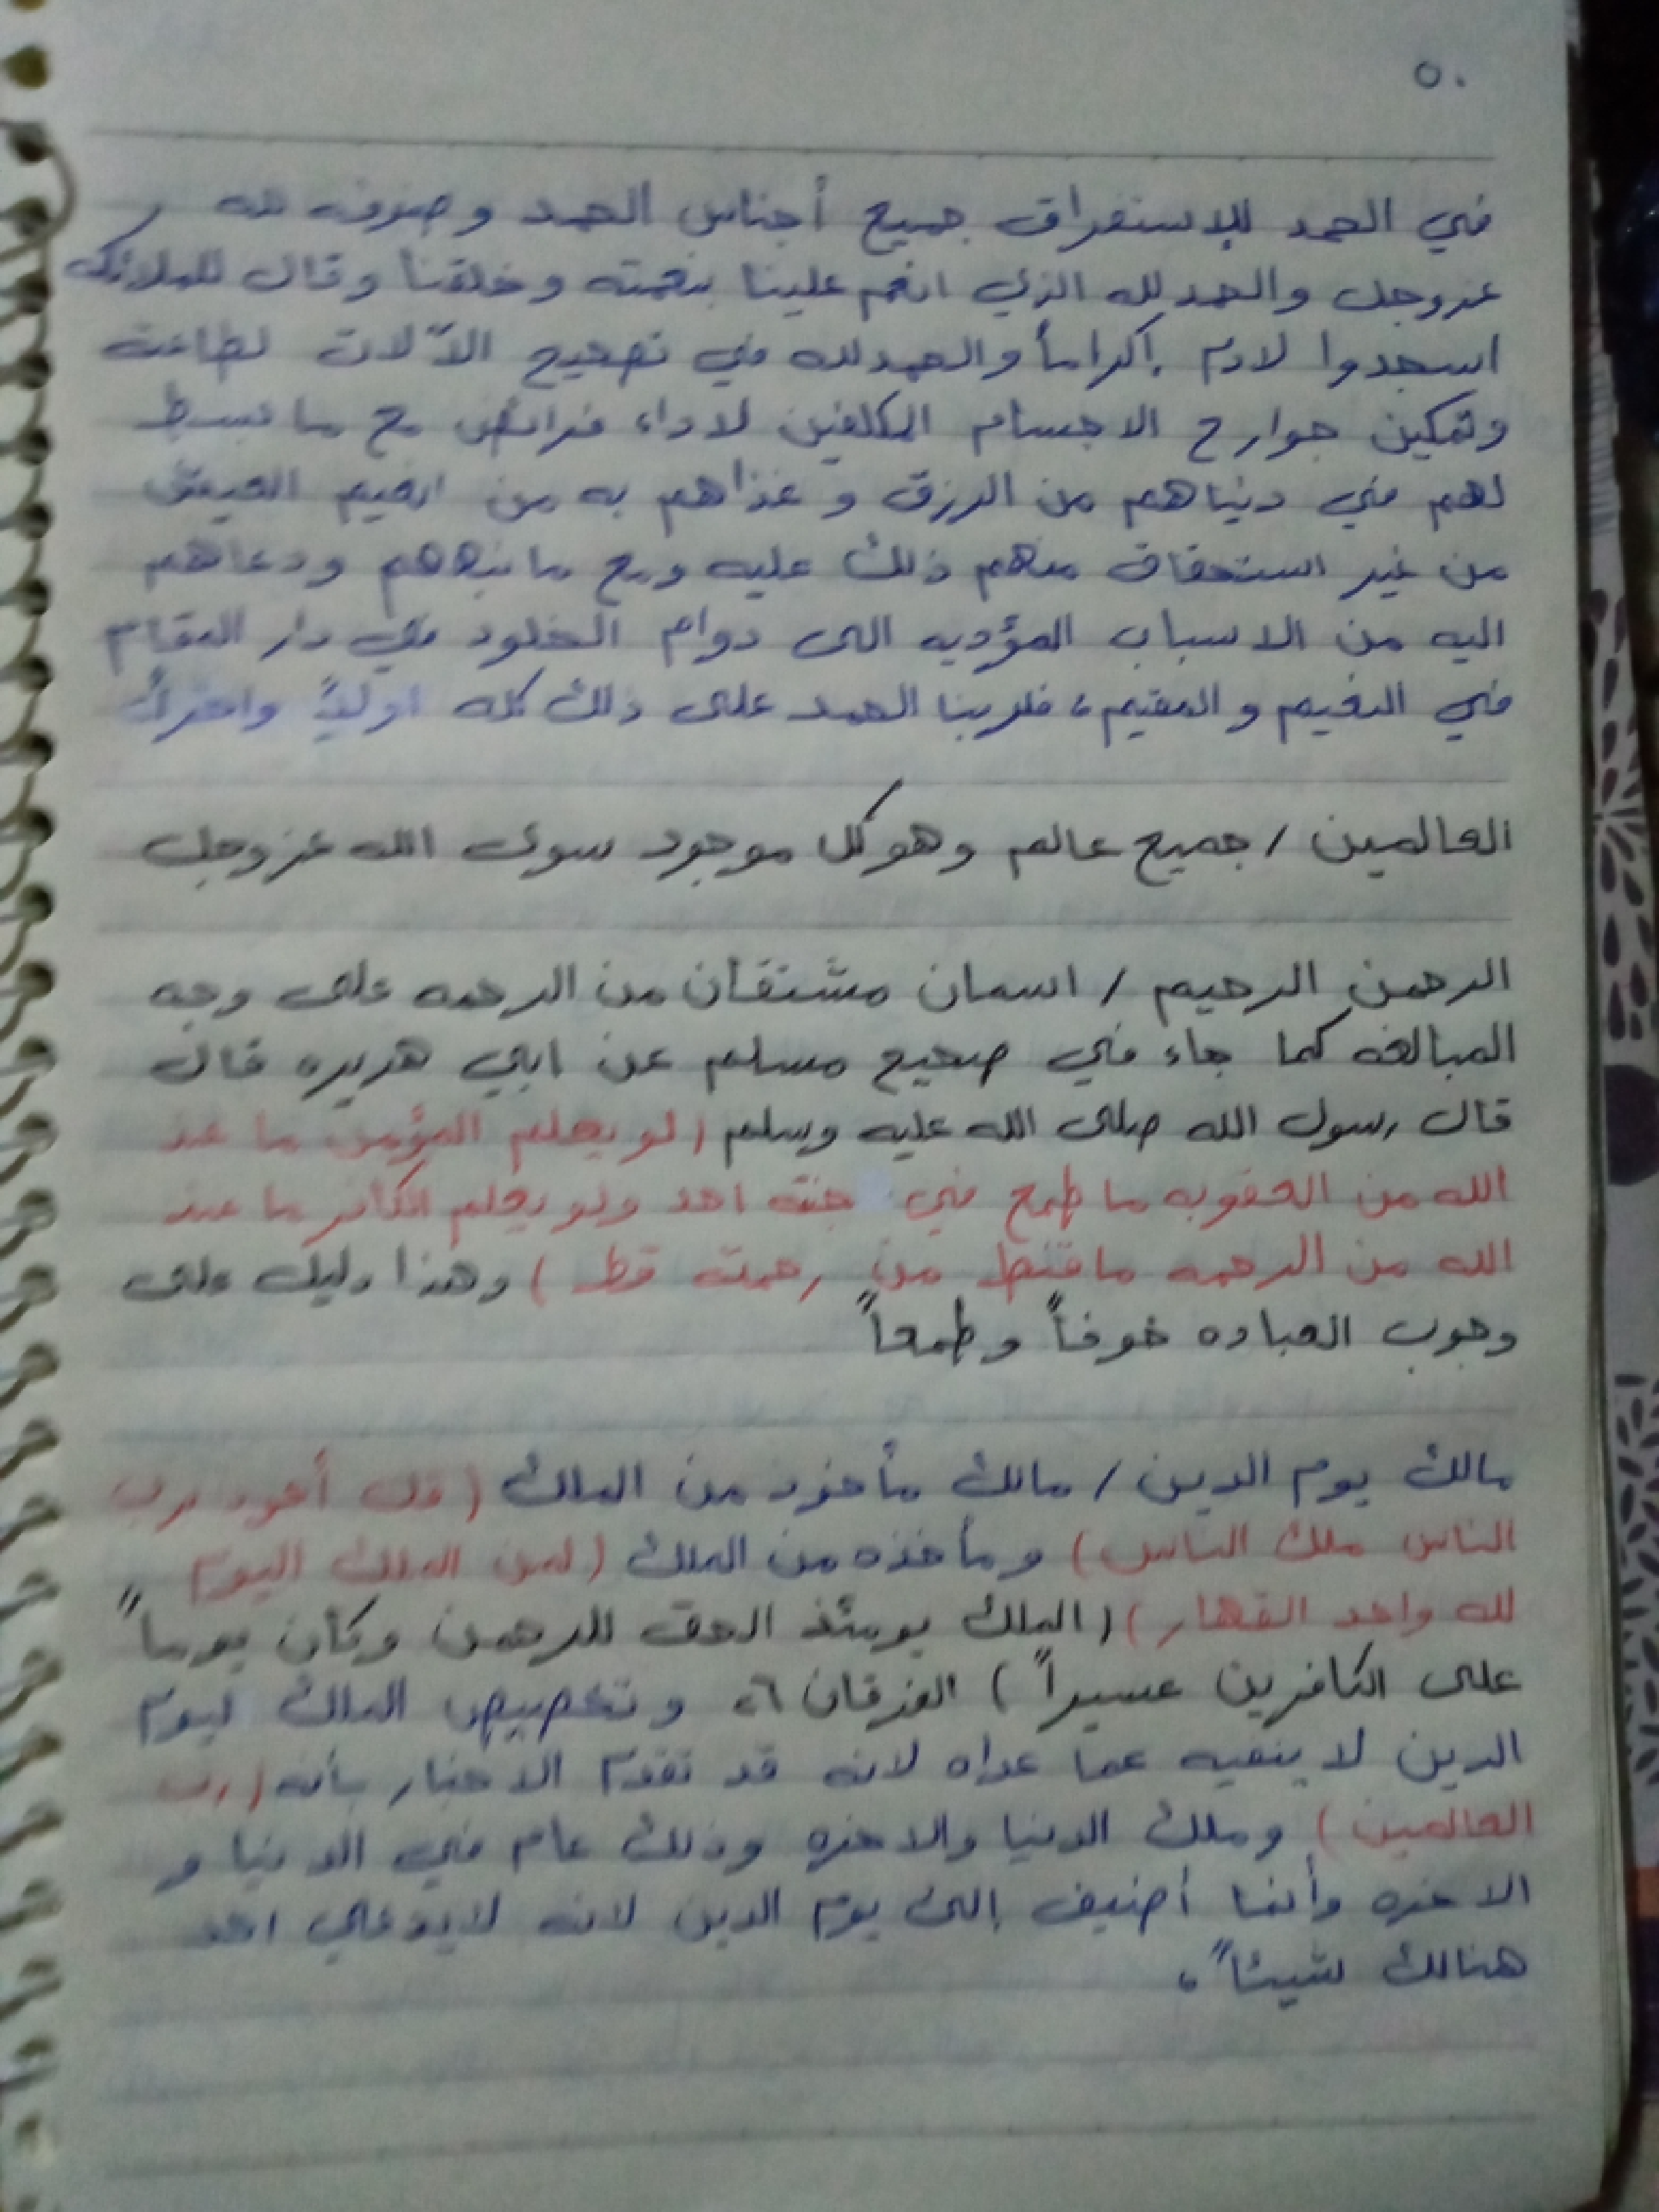 ٥٠
في الحمد للإستغراق جميع أجناس الحمد وصنوفه لله
عزوجل والحمدلله الذي انعم علينا بنعمته وخلقنا وقال للملائكه
اسجدوا لادم إكراماً والحمدلله في تصحيح الآلات لطاعته
وتمكين جوارح الاجسام المكلفين لاداء فرائض مع ما بسط
لهم في دنياهم من الرزق و غذاهم به من انعيم العيش
من غير استحقاق منهم ذلك عليه ومع ما نبههم ودعاهم
اليه من الاسباب المؤديه الى دوام الخلود في دار المقام
في النعيم و المقيم، فلربنا الحمد على ذلك كله
العالمين / جميع عالم وهو كل موجود سوى الله عزوجل
الرحمن الرحيم / اسمان مشتقان من الرحمه على وجه
المبالغه كما جاء في صحيح مسلم عن ابي هريره قال
قال رسول الله صلى الله عليه وسلم (لو يعلم المؤمن ما عند
الله من العقوبه ما طمع في جنته احد ولو يعلم الكافر ما عند
الله من الرحمه ما قنط من رحمته قط ) وهذا دليل على
وجوب العباده خوفاً وطمعاً
مالك يوم الدين / مالك مأخوذ من الملك ( قل أعوذ برب
الناس ملك الناس ) ومأخذه من الملك (لمن الملك اليوم
لله واحد القهار ) (الملك يومئذ الحق للرحمن وكان يوماً
على الكافرين عسيراً ) الفرقان ٢٦ وتخصيص الملك ليوم
الدين لا ينفيه عما عداه لانه قد تقدم الاخبار بأنه (رب
العالمين ) وملك الدنيا والاخره وذلك عام في الدنيا و
الاخره وأنما أضيف إلى يوم الدين لانه لايدعي احد
هنالك شيئاً،